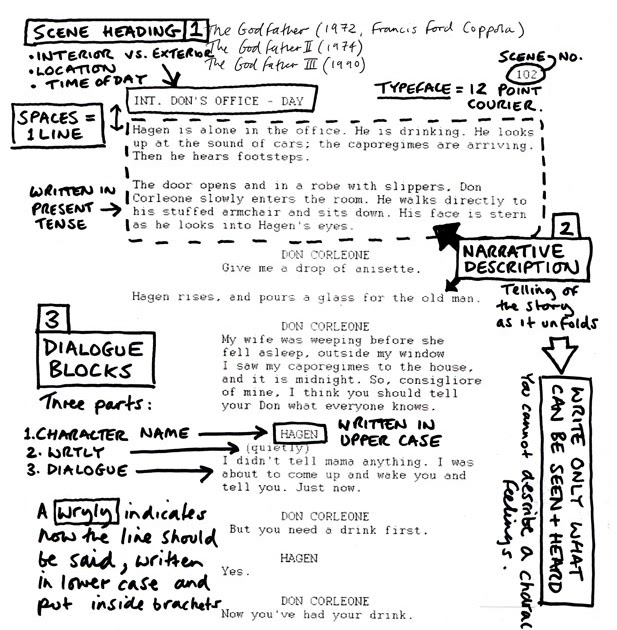 SCENE HEADING 1
• INTERIOR VS. EXTERIOR
• LOCATION
• TIME OF DAY
The Godfather (1972, Francis Ford Coppola)
The Godfather II (1974)
The Godfather III (1990)
SCENE NO.
102
TYPEFACE = 12 POINT
COURIER.
INT. DON'S OFFICE - DAY
SPACES =
1 LINE
Hagen is alone in the office. He is drinking. He looks
up at the sound of cars; the caporegimes are arriving.
Then he hears footsteps.
WRITTEN IN
PRESENT
TENSE
The door opens and in a robe with slippers, Don
Corleone slowly enters the room. He walks directly to
his stuffed armchair and sits down. His face is stern
as he looks into Hagen's eyes.
2
NARRATIVE
DESCRIPTION
Telling of
the story
as it unfolds
WRITE ONLY WHAT
CAN BE SEEN + HEARD
You cannot describe a charac
feelings.
DON CORLEONE
Give me a drop of anisette.
Hagen rises, and pours a glass for the old man.
DON CORLEONE
My wife was weeping before she
fell asleep, outside my window
I saw my caporegimes to the house,
and it is midnight. So, consigliore
of mine, I think you should tell
your Don what everyone knows.
3
DIALOGUE
BLOCKS
Three parts:
1. CHARACTER NAME
2. WRYLY
3. DIALOGUE
HAGEN
WRITTEN IN
UPPER CASE
(quietly)
I didn't tell mama anything. I was
about to come up and wake you and
tell you. Just now.
A wryly indicates
how the line should
be said, written
in lower case and
put inside brackets
DON CORLEONE
But you need a drink first.
HAGEN
Yes.
DON CORLEONE
Now you've had your drink.